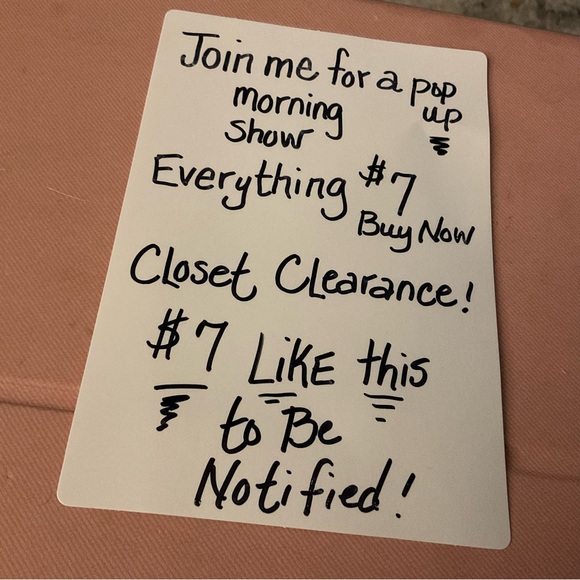 Join me for a pop up
morning
show
Everything $7
Buy Now
Closet Clearance!
$7 Like this
to Be
Notified!